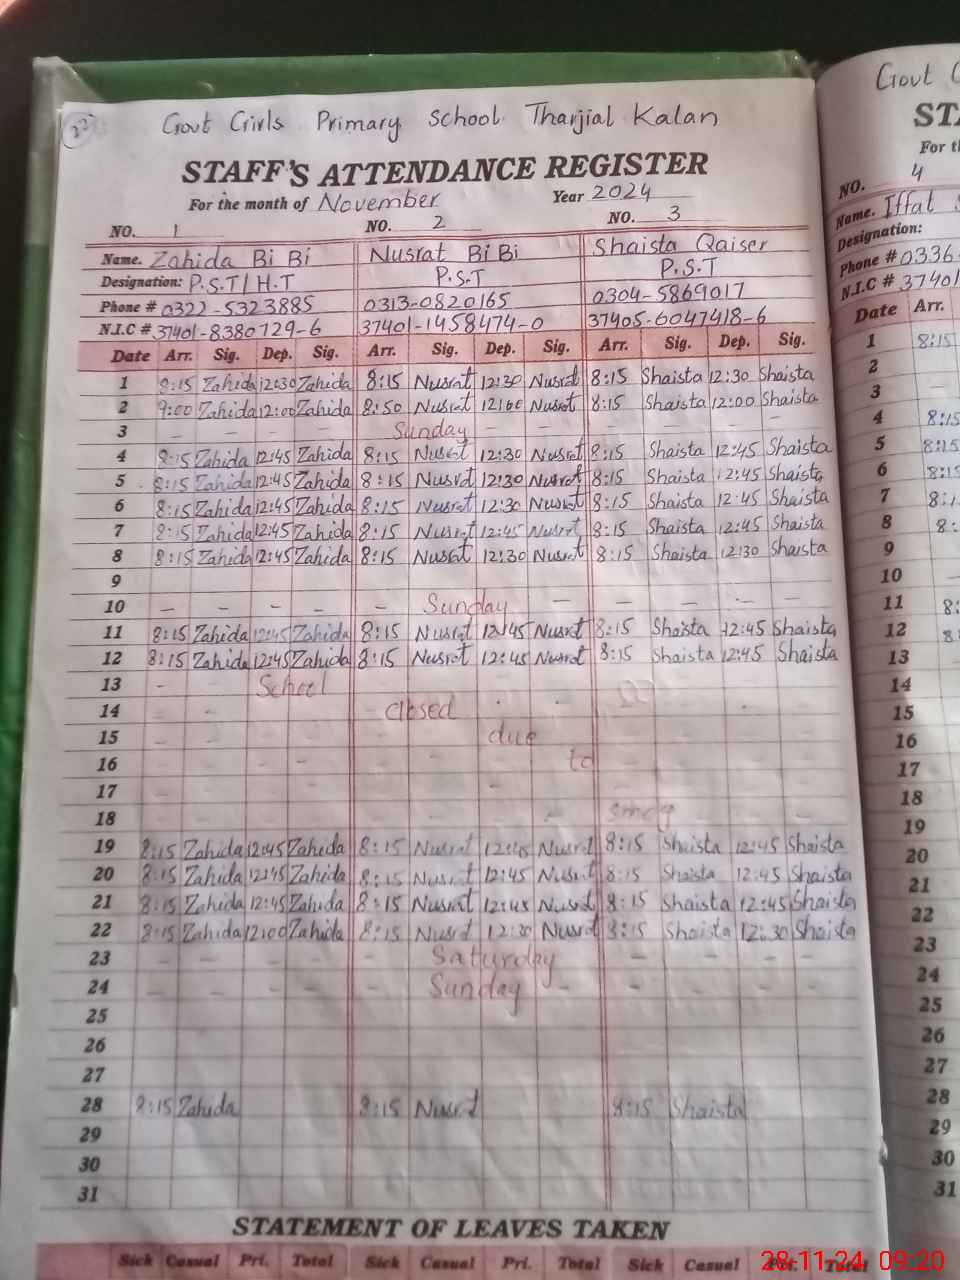 22
Govt Girls Primary School Tharjial Kalan
STAFF'S ATTENDANCE REGISTER
For the month of November Year 2024
NO. 1 NO. 2 NO. 3
Name. Zahida Bi Bi Nusrat Bi Bi Shaista Qaiser
Designation: P.S.T/H.T P.S.T P.S.T
Phone # 0322-5323885 0313-0820165 0304-5869017
N.I.C # 37401-8380729-6 37401-1458474-0 37405-6047418-6
Date Arr. Sig. Dep. Sig. Arr. Sig. Dep. Sig. Arr. Sig. Dep. Sig.
1 8:15 Zahida 12:30 Zahida 8:15 Nusrat 12:30 Nusrat 8:15 Shaista 12:30 Shaista
2 9:00 Zahida 12:00 Zahida 8:50 Nusrat 12:00 Nusrat 8:15 Shaista 12:00 Shaista
3 – – – – – Sunday – – – – – –
4 8:15 Zahida 12:45 Zahida 8:15 Nusrat 12:30 Nusrat 8:15 Shaista 12:45 Shaista
5 8:15 Zahida 12:45 Zahida 8:15 Nusrat 12:30 Nusrat 8:15 Shaista 12:45 Shaista
6 8:15 Zahida 12:45 Zahida 8:15 Nusrat 12:30 Nusrat 8:15 Shaista 12:45 Shaista
7 8:15 Zahida 12:45 Zahida 8:15 Nusrat 12:45 Nusrat 8:15 Shaista 12:45 Shaista
8 8:15 Zahida 12:45 Zahida 8:15 Nusrat 12:30 Nusrat 8:15 Shaista 12:30 Shaista
9
10 – – – – – Sunday – – – – – –
11 8:15 Zahida 12:45 Zahida 8:15 Nusrat 12:45 Nusrat 8:15 Shaista 12:45 Shaista
12 8:15 Zahida 12:45 Zahida 8:15 Nusrat 12:45 Nusrat 8:15 Shaista 12:45 Shaista
13 School
14 closed
15 due
16 to
17
18 smog
19 8:15 Zahida 12:45 Zahida 8:15 Nusrat 12:45 Nusrat 8:15 Shaista 12:45 Shaista
20 8:15 Zahida 12:45 Zahida 8:15 Nusrat 12:45 Nusrat 8:15 Shaista 12:45 Shaista
21 8:15 Zahida 12:45 Zahida 8:15 Nusrat 12:45 Nusrat 8:15 Shaista 12:45 Shaista
22 8:15 Zahida 12:00 Zahida 8:15 Nusrat 12:30 Nusrat 8:15 Shaista 12:30 Shaista
23 – – – – – Saturday – – – – – –
24 – – – – – Sunday – – – – – –
25
26
27
28 8:15 Zahida 8:15 Nusrat 8:15 Shaista
29
30
31
STATEMENT OF LEAVES TAKEN
Sick Casual Pri. Total Sick Casual Pri. Total Sick Casual Pri. Total
Govt
NO. 4
Name. Iffat
Designation:
Phone # 0336-
N.I.C # 3740
Date Arr.
1 8:15
2
3
4 8:15
5 8:15
6 8:15
7
8
9
10
11
12
13
14
15
16
17
18
19
20
21
22
23
24
25
26
27
28
29
30
31
28.11.24 09:20